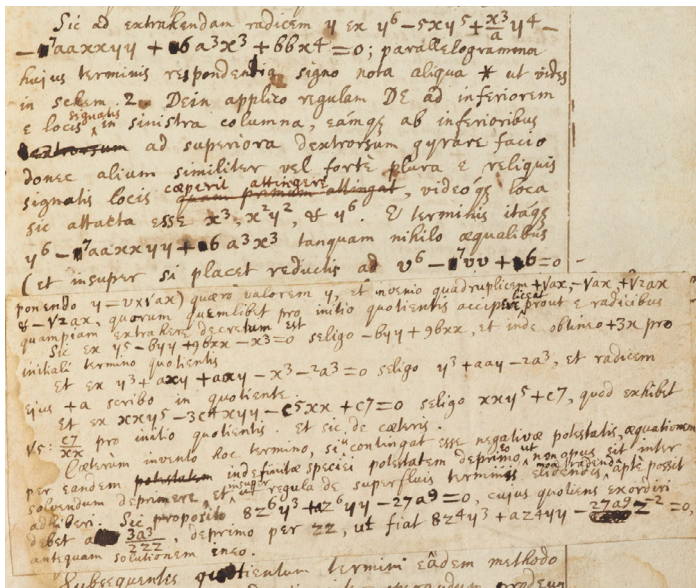 Sic ad extrahendam radicem y ex y⁶ − 5xy⁵ + x³/a y⁴ −
− 7aaxxyy + 6a³x³ + bbx⁴ = 0; parallelogramma
hujus terminis respondentia signo nota aliqua * ut vides
in schem. 2. Dein applico regulam DE ad inferiorem
e locis signatis in sinistra columna, eamqꝫ ab inferioribus
dextrorsum ad superiora dextrorsum gyrare facio
donec alium similiter vel fortè plura e reliquis
signatis locis cœperit attingere quam primum attingat, videoqꝫ loca
sic attacta esse x³, x²y², & y⁶. E terminis itáqꝫ
y⁶ − 7aaxxyy + 6a³x³ tanquam nihilo æqualibus
(et insuper si placet reductis ad v⁶ − 7vv + 6 = 0 −
ponendo y = v×√ax) quæro valorem y, et invenio quadruplicem +√ax, −√ax, +√2ax
& −√2ax, quorum quemlibet pro initio quotientis accipere licet prout e radicibus
quampiam extrahere decretum est
Sic ex y⁵ − byy + 9bxx − x³ = 0 seligo − byy + 9bxx, et inde obtineo +3x pro
initiali termino quotientis
Et ex y³ + axy + aay − x³ − 2a³ = 0 seligo y³ + aay − 2a³, et radicem
ejus +a scribo in quotiente.
Et ex xxy⁵ − 3c⁴xyy − c⁵xx + c⁷ = 0 seligo xxy⁵ + c⁷, quod exhibet
√5: c⁷/xx pro initio quotientis. Et sic de cæteris.
Cæterum invento hoc termino, si contingat esse negativæ potestatis, æquationem
per eandem potestatem indefinitæ speciei potestatem deprimo, eò ut non opus sit inter
solvendum deprimere, et insuper ut regula de superfluis terminis mox tradenda elidendis aptè possit
adhiberi. Sic proposito 8z⁶y³ + az⁶yy − 27a⁹ = 0, cujus quotiens exordiri
debet a 3a³/2zz, deprimo per zz, ut fiat 8z⁴y³ + az⁴yy − 27a⁹z⁻² = 0,
antequam solutionem ineo.
Subsequentis quotientum termini eâdem methodo